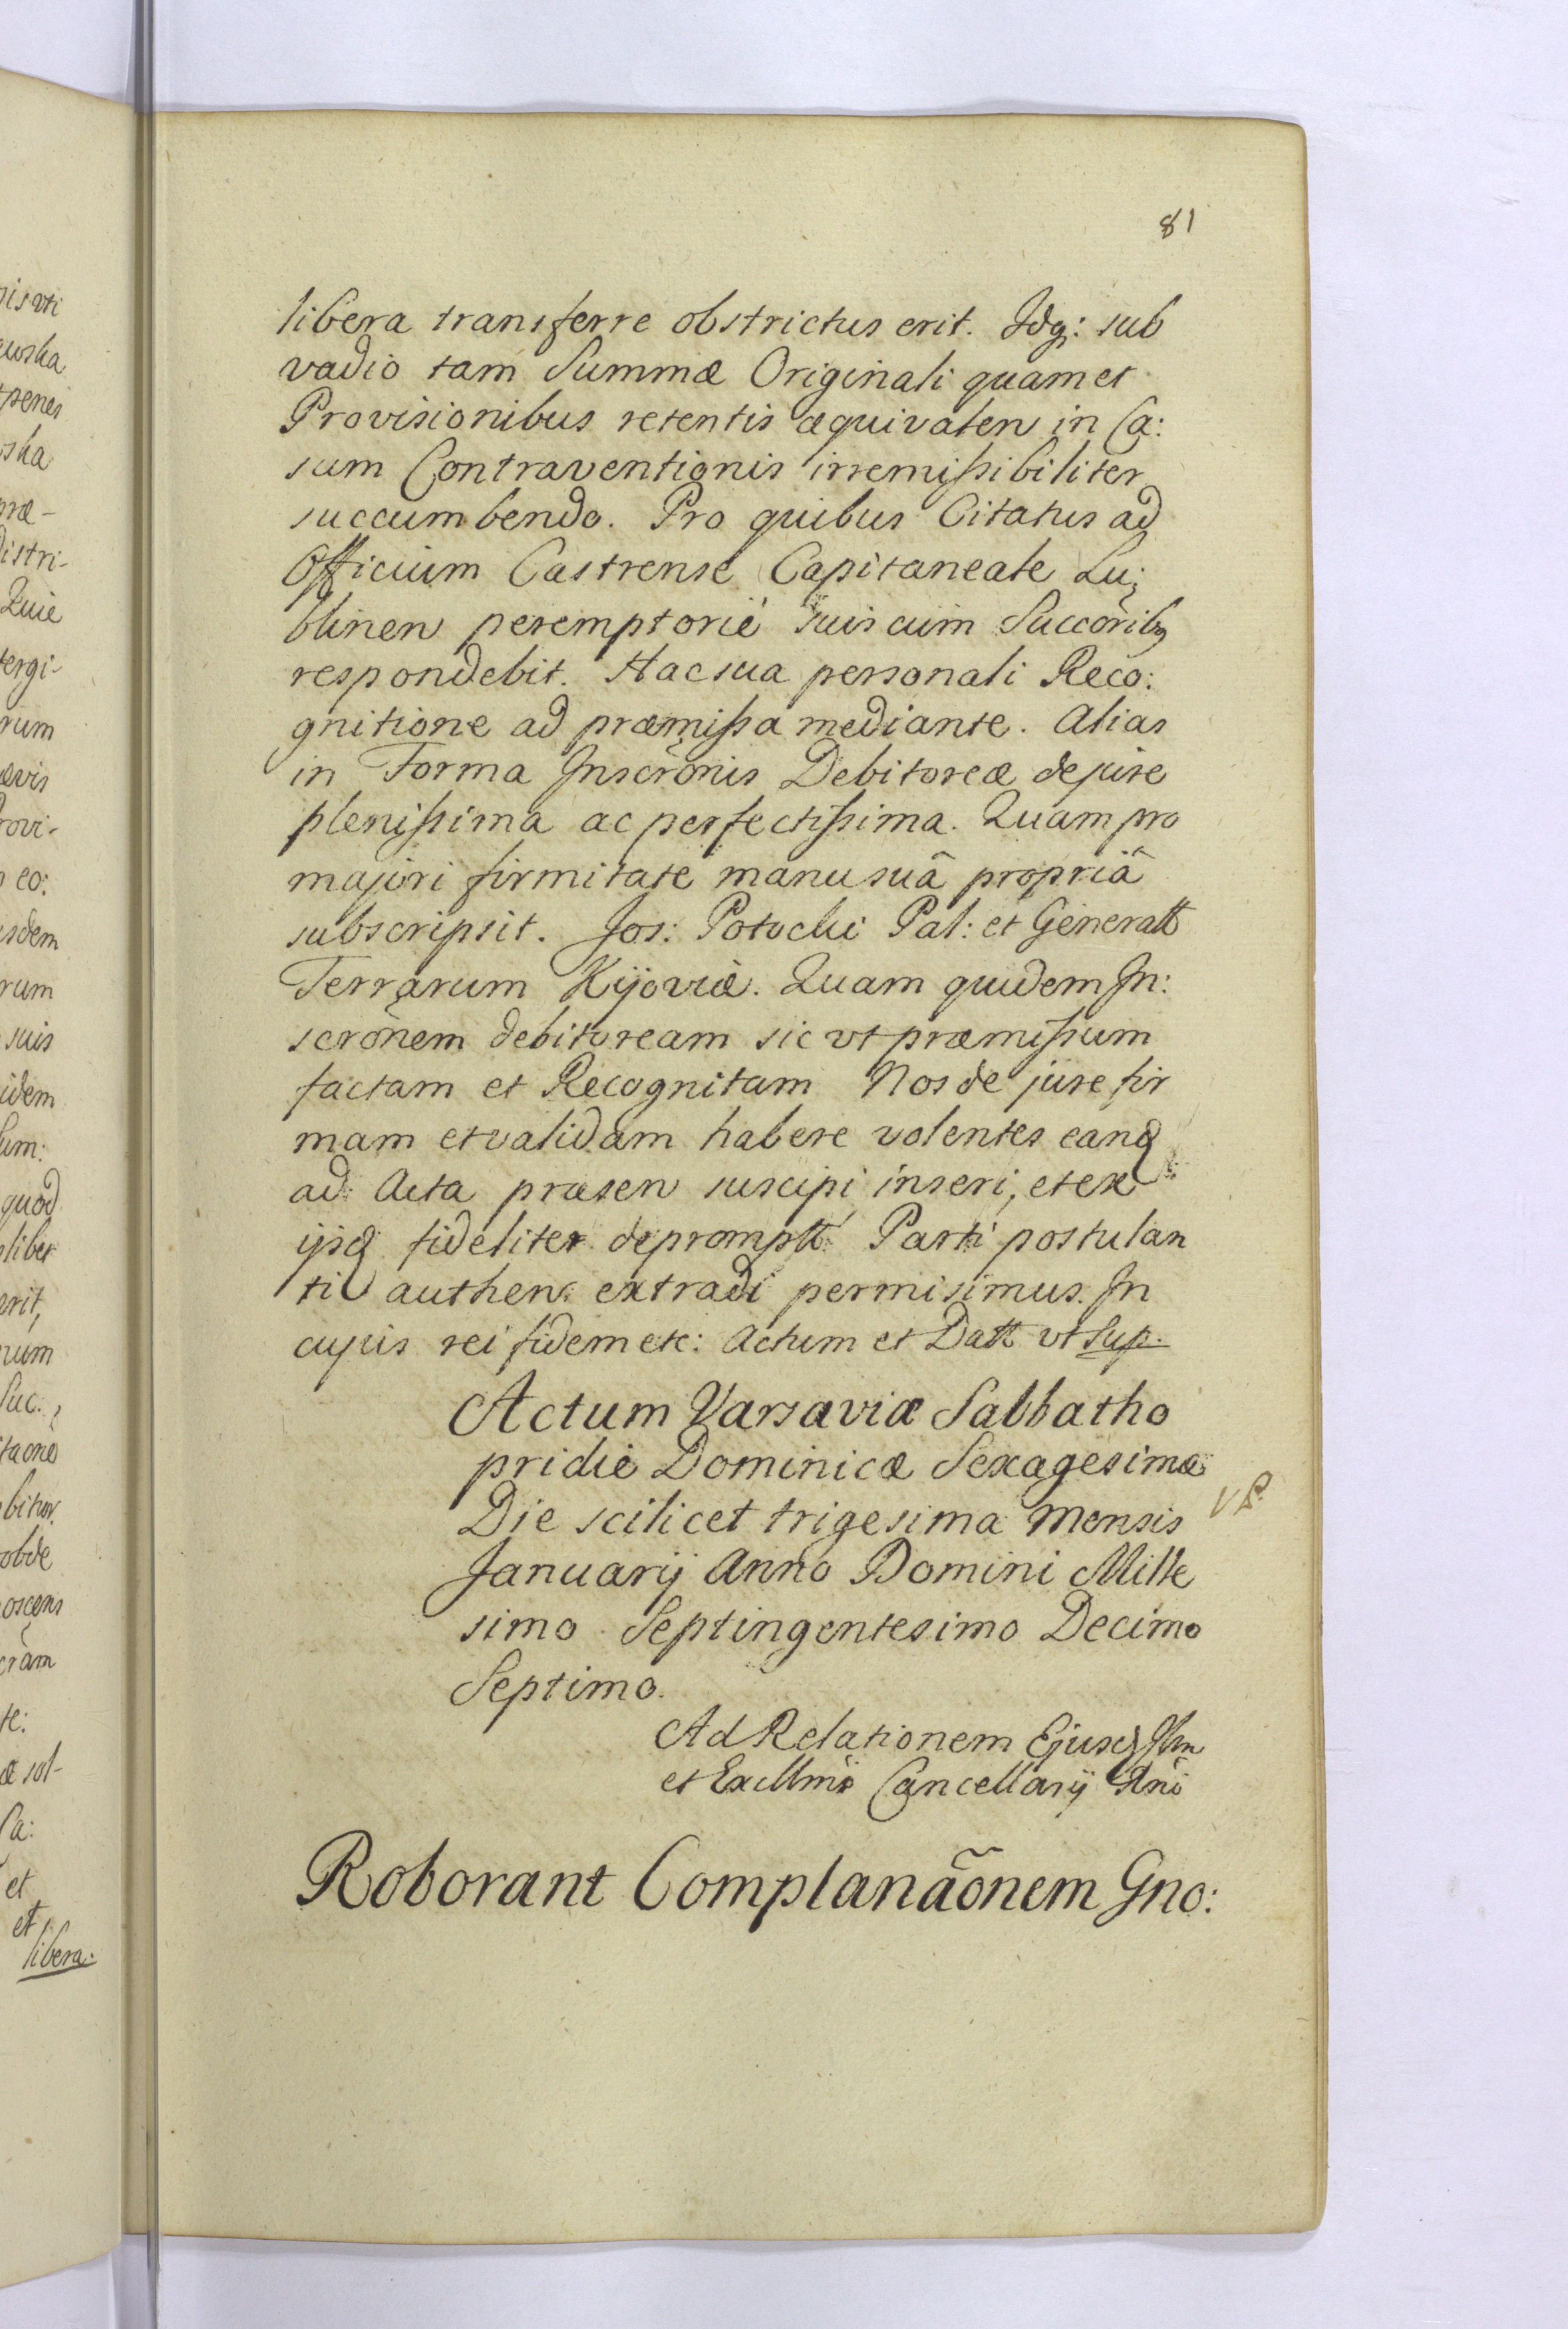 81
libera transferre obstrictus erit. Idq: sub
vadio tam Summæ Originali quam et
Provisionibus retentis æquivalen in Ca:
sum Contraventionis irremißibiliter
succumbendo. Pro quibus Citatus ad
Officium Castrense Capitaneale Lu:
blinen peremptorie suis cum Succõribq
respondebit. Hac sua personali Reco:
gnitione ad præmißa mediante. Alias
in Forma Inscrõnis Debitoreæ de jure
plenißima ac perfectißima. Quam pro
majori firmitate manu suâ propriâ
subscripsit. Jos: Potocki Pal: et Generalt
Terrarum Kijoviæ. Quam quidem In:
scrõnem debitoream sic ut præmißum
factam et Recognitam Nos de jure fir
mam et validam habere volentes eand
ad Acta præsen suscipi, inseri, et ex
ijsd fideliter deprompt Parti postulan
ti authen extradi permisimus. In
cujus rei fidem etc: Actum et Datt ut Sup.
Actum Varsaviæ Sabbatho
pridie Dominicæ Sexagesimæ
Die scilicet trigesima Mensis
Januarij Anno Domini Mille
simo Septingentesimo Decimo
Septimo.
Ad Relationem Ejusd Illm
et Excllmi Cancellarij Rni
Roborant Complanaõnem Gno: